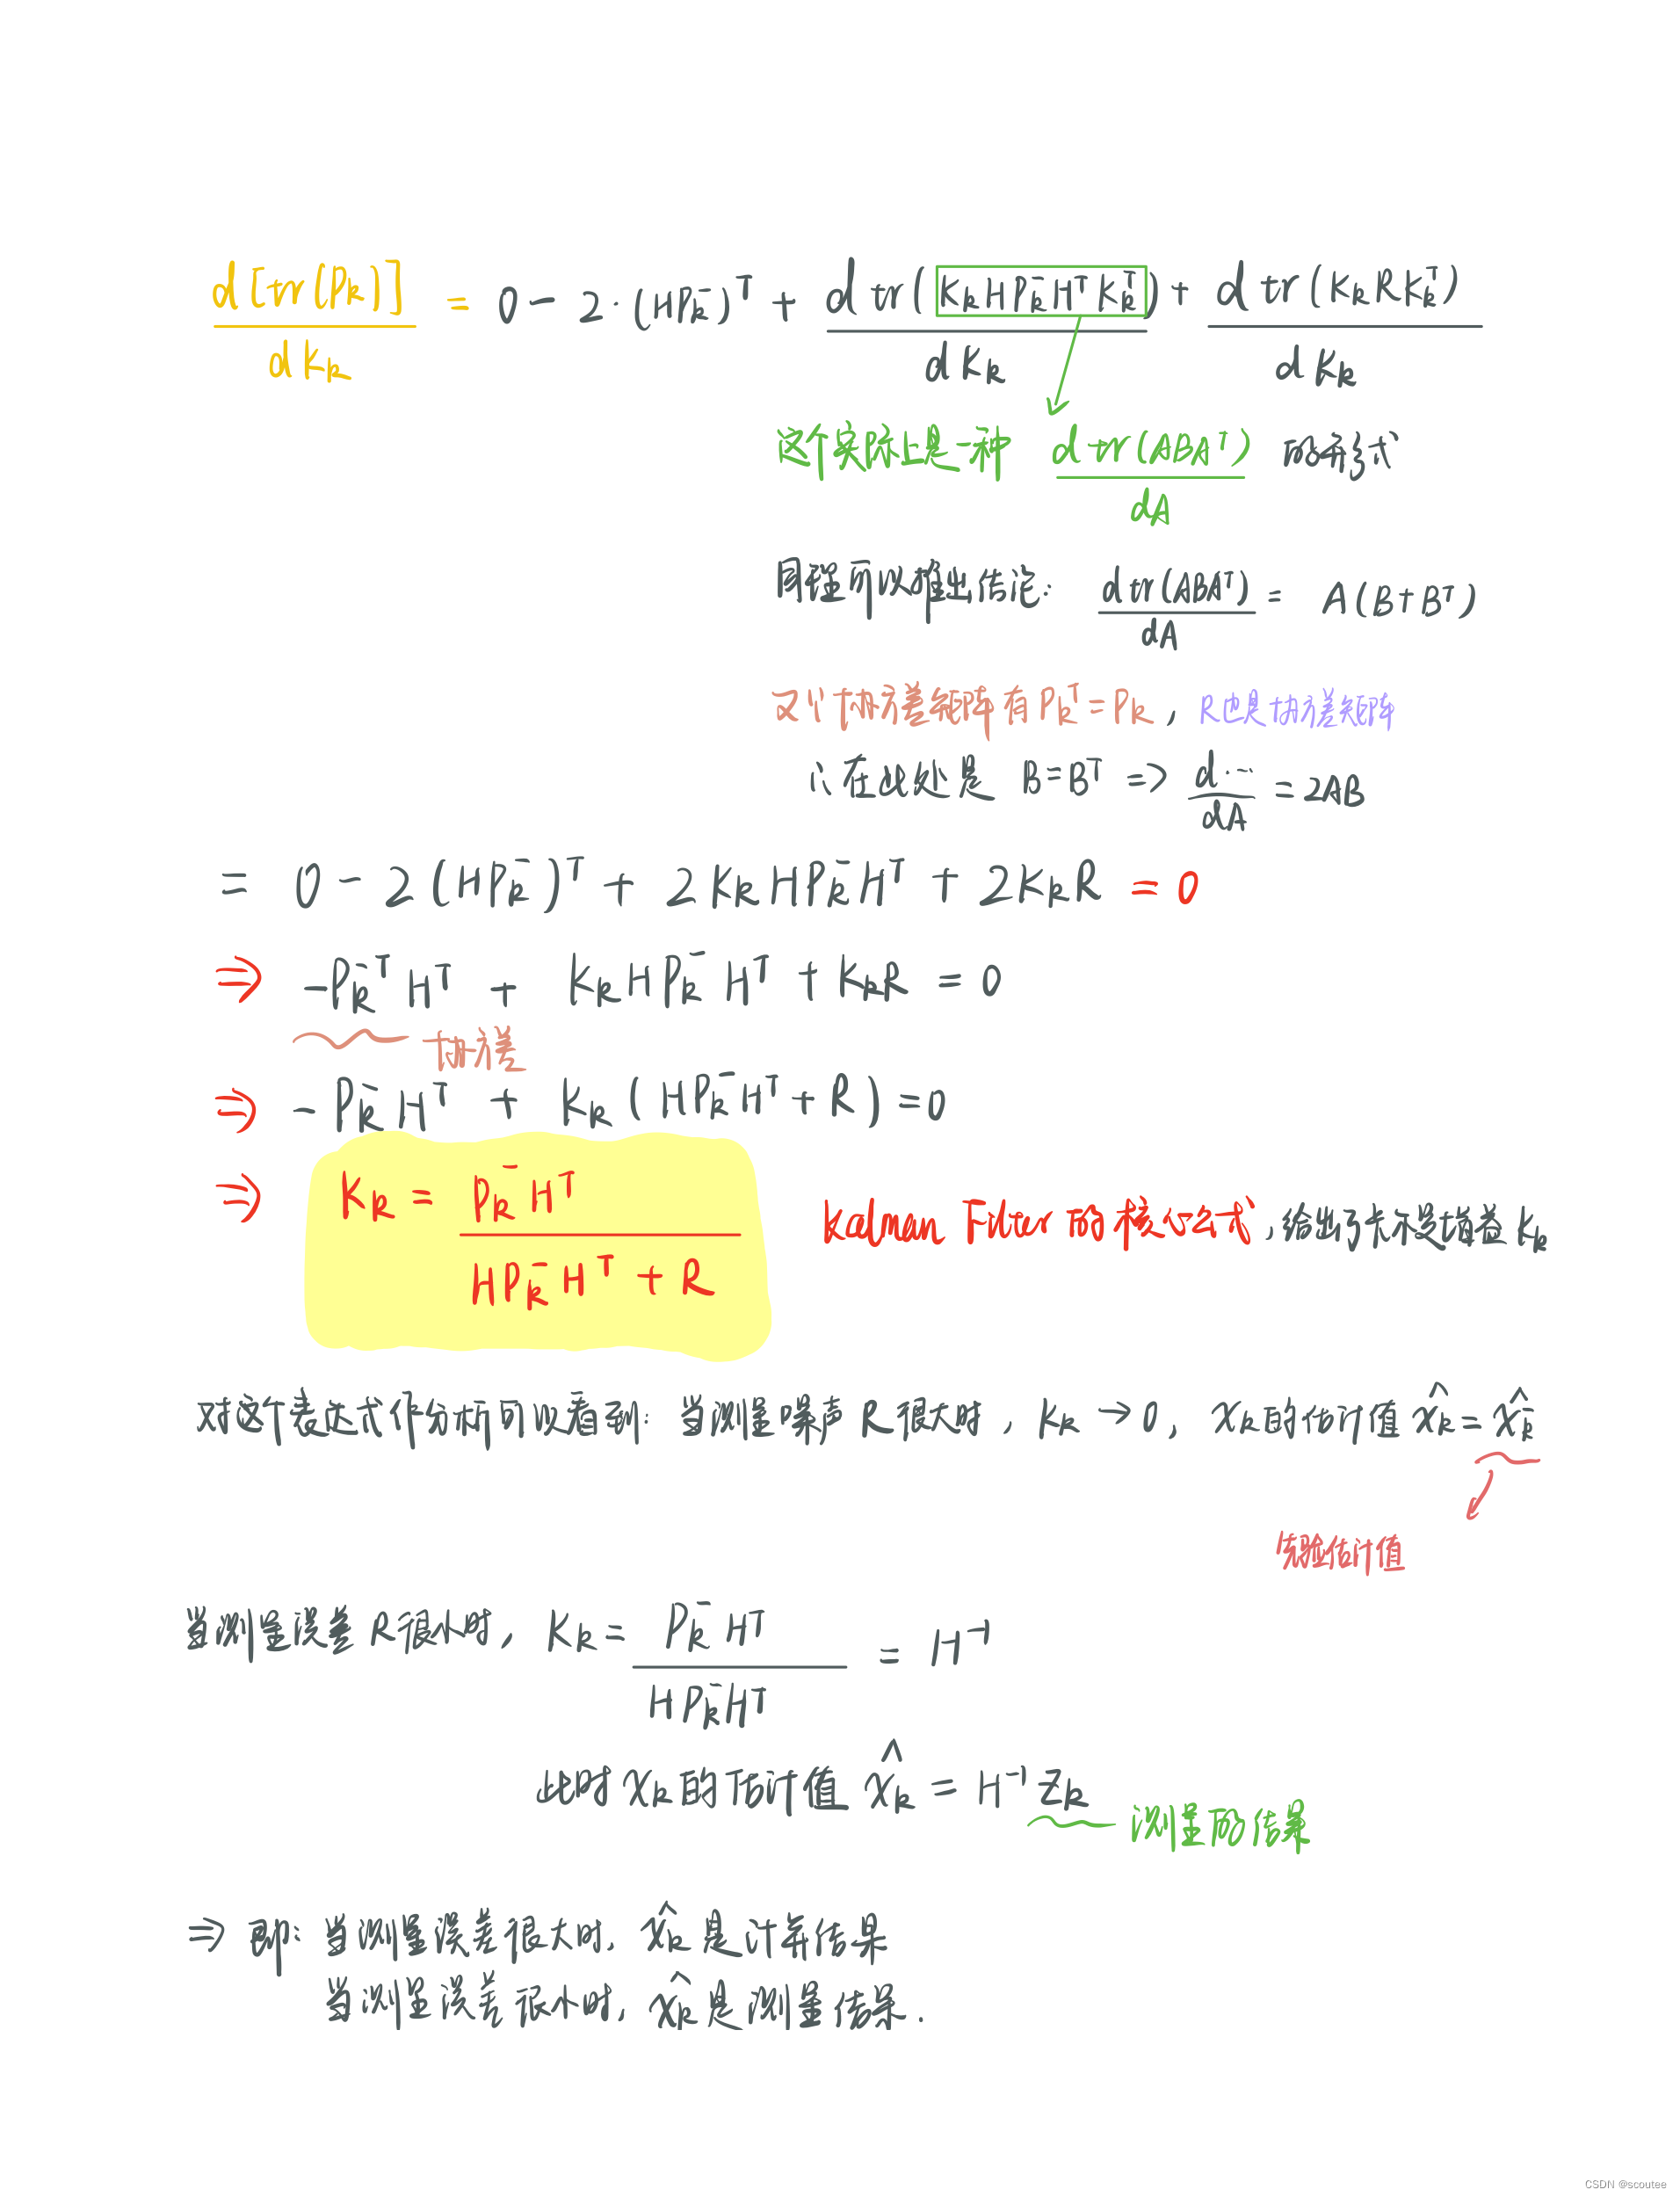 d[tr(P_k)] / dK_k = 0 - 2·(HP_k^-)^T + d tr(K_k H P_k^- H^T K_k^T) / dK_k + d tr(K_k R K_k^T) / dK_k
这个实际上是一种 d tr(ABA^T) / dA 的形式
同理可以推出结论: d tr(ABA^T) / dA = A(B+B^T)
又∵协方差矩阵有 P_k^T = P_k, R也是协方差矩阵
∴在此处是 B=B^T => d… / dA = 2AB
= 0 - 2(HP_k^-)^T + 2K_k H P_k^- H^T + 2K_k R = 0
⇒ -P_k^-T H^T + K_k H P_k^- H^T + K_k R = 0
协方差
⇒ -P_k^- H^T + K_k (HP_k^- H^T + R) = 0
⇒ K_k = P_k^- H^T / HP_k^- H^T + R Kalman Filter 的核心公式, 给出了卡尔曼增益 K_k
对这个表达式作分析可以看到: 当测量噪声 R 很大时, K_k → 0, x_k 的估计值 x̂_k = x̂_k^-
先验估计值
当测量误差 R 很小时, K_k = P_k^- H^T / HP_k^- H^T = H^-1
此时 x_k 的估计值 x̂_k = H^-1 z_k
测量的结果
⇒ 即: 当测量误差很大时, x̂_k 是计算结果
当测量误差很小时, x̂_k 是测量结果.
CSDN @scoutee